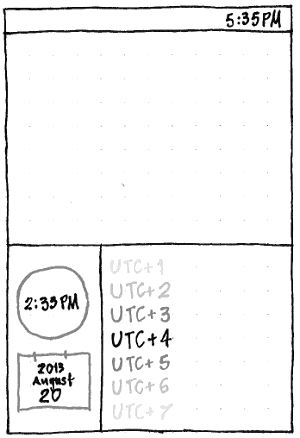 5:35PM
2:35PM
2013
August
20
UTC+1
UTC+2
UTC+3
UTC+4
UTC+5
UTC+6
UTC+7